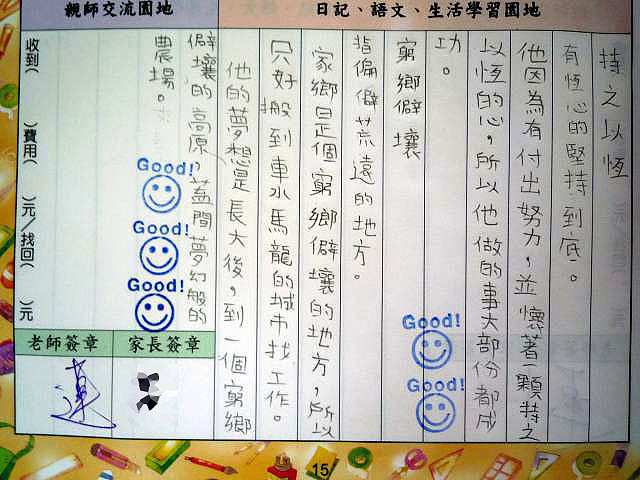 日記、語文、生活學習園地
持之以恆
有恆心的堅持到底。
他因為有付出努力，並懷著一顆持之
以恆的心，所以他做的事大部份都成
功。
Good!
Good!
窮鄉僻壤
指偏僻荒遠的地方。
家鄉是個窮鄉僻壤的地方，所以
只好搬到車水馬龍的城市找工作。
他的夢想是長大後，到一個窮鄉
僻壤的高原，蓋間夢幻般的
農場。
Good!
Good!
Good!
親師交流園地
收到(　　)費用(　　)元/找回(　　)元
家長簽章
老師簽章
15